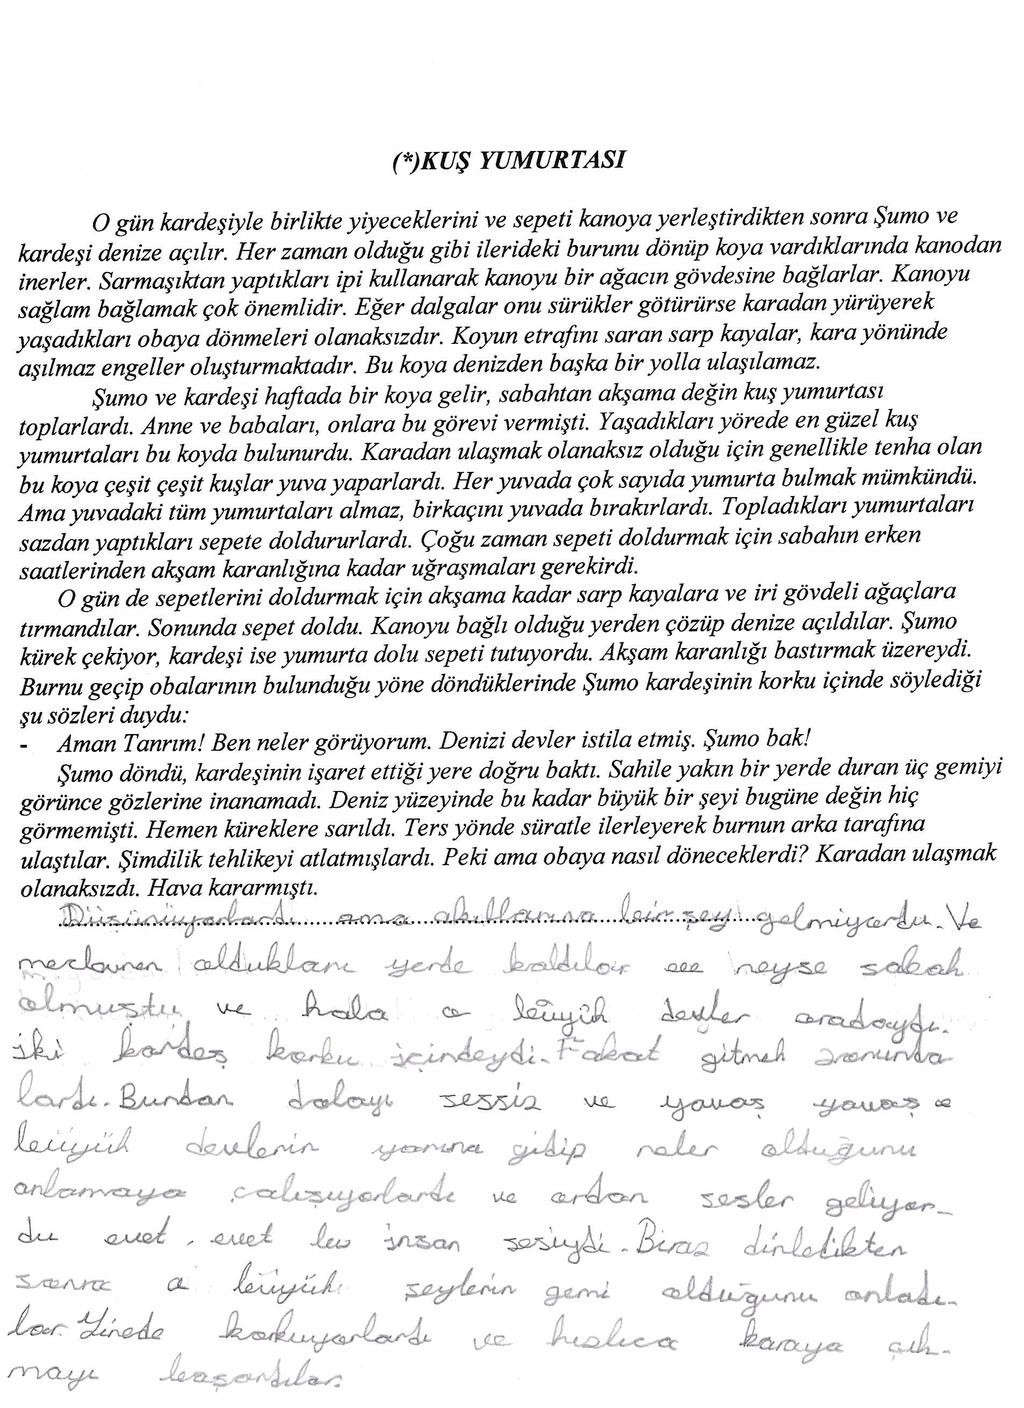 (*)KUŞ YUMURTASI
O gün kardeşiyle birlikte yiyeceklerini ve sepeti kanoya yerleştirdikten sonra Şumo ve
kardeşi denize açılır. Her zaman olduğu gibi ilerideki burunu dönüp koya vardıklarında kanodan
inerler. Sarmaşıktan yaptıkları ipi kullanarak kanoyu bir ağacın gövdesine bağlarlar. Kanoyu
sağlam bağlamak çok önemlidir. Eğer dalgalar onu sürükler götürürse karadan yürüyerek
yaşadıkları obaya dönmeleri olanaksızdır. Koyun etrafını saran sarp kayalar, kara yönünde
aşılmaz engeller oluşturmaktadır. Bu koya denizden başka bir yolla ulaşılamaz.
Şumo ve kardeşi haftada bir koya gelir, sabahtan akşama değin kuş yumurtası
toplarlardı. Anne ve babaları, onlara bu görevi vermişti. Yaşadıkları yörede en güzel kuş
yumurtaları bu koyda bulunurdu. Karadan ulaşmak olanaksız olduğu için genellikle tenha olan
bu koya çeşit çeşit kuşlar yuva yaparlardı. Her yuvada çok sayıda yumurta bulmak mümkündü.
Ama yuvadaki tüm yumurtaları almaz, birkaçını yuvada bırakırlardı. Topladıkları yumurtaları
sazdan yaptıkları sepete doldururlardı. Çoğu zaman sepeti doldurmak için sabahın erken
saatlerinden akşam karanlığına kadar uğraşmaları gerekirdi.
O gün de sepetlerini doldurmak için akşama kadar sarp kayalara ve iri gövdeli ağaçlara
tırmandılar. Sonunda sepet doldu. Kanoyu bağlı olduğu yerden çözüp denize açıldılar. Şumo
kürek çekiyor, kardeşi ise yumurta dolu sepeti tutuyordu. Akşam karanlığı bastırmak üzereydi.
Burnu geçip obalarının bulunduğu yöne döndüklerinde Şumo kardeşinin korku içinde söylediği
şu sözleri duydu:
- Aman Tanrım! Ben neler görüyorum. Denizi devler istila etmiş. Şumo bak!
Şumo döndü, kardeşinin işaret ettiği yere doğru baktı. Sahile yakın bir yerde duran üç gemiyi
görünce gözlerine inanamadı. Deniz yüzeyinde bu kadar büyük bir şeyi bugüne değin hiç
görmemişti. Hemen küreklere sarıldı. Ters yönde süratle ilerleyerek burnun arka tarafına
ulaştılar. Şimdilik tehlikeyi atlatmışlardı. Peki ama obaya nasıl döneceklerdi? Karadan ulaşmak
olanaksızdı. Hava kararmıştı.
Düşünüyorlardı ama akıllarına bir şey gelmiyordu. Ve
mecburen oldukları yerde kaldılar neyse sabah
olmuştu ve hala o büyük devler oradaydı.
iki kardeş korku içindeydi. Fakat gitmek zorunda
lardı. Bundan dolayı sessiz ve yavaş yavaş o
büyük devlerin yanına gidip neler olduğunu
anlamaya çalışıyorlardı ve ordan sesler geliyor-
du evet, evet bu insan sesiydi. Biraz dinledikten
sonra o büyük şeylerin gemi olduğunu anladı-
lar. Yinede korkuyorlardı ve hızlıca karaya çık-
mayı başardılar.